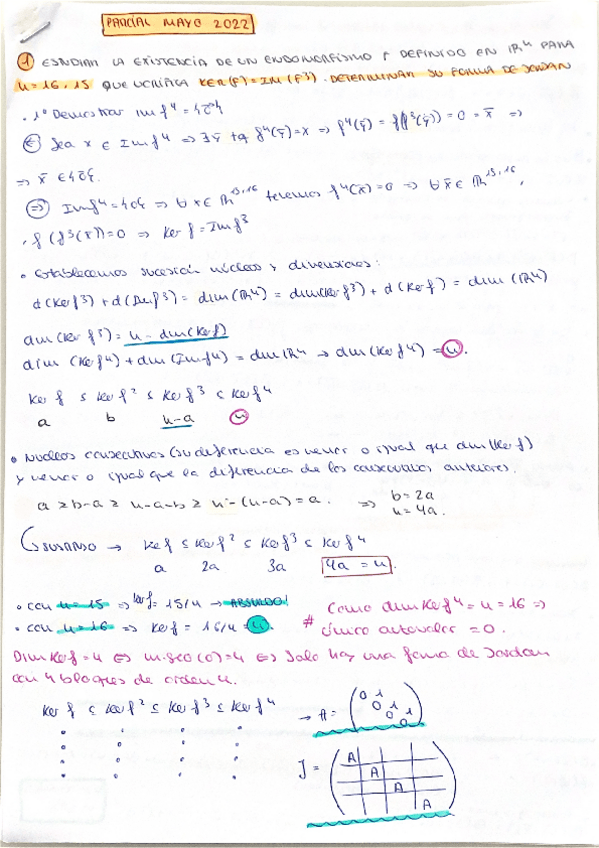 PARCIAL MAYO 2022
① ESTUDIAR LA EXISTENCIA DE UN ENDOMORFISMO F DEFINIDO EN ℝⁿ PARA
n=16, 15 QUE VERIFICA KER(F)=IM(F³). DETERMINAR SU FORMA DE JORDAN
· 1º Demostrar Im f⁴ = {0}
⇐ Sea x ∈ Im f⁴ ⇒ ∃ȳ tq f⁴(ȳ)=x ⇒ f⁴(ȳ) = f(f³(ȳ)) = 0 = x̄ ⇒
⇒ x̄ ∈ {0}.
⇒ Im f⁴ = {0} ⇒ ∀ x ∈ ℝ¹⁵,¹⁶ tenemos f⁴(x̄)=0 ⇒ ∀ x̄ ∈ ℝ¹⁵,¹⁶,
, f(f³(x̄))=0 ⇒ Ker f = Im f³
• Establecemos sucesión núcleos y dimensiones:
d(Ker f³) + d(Im f³) = dim(ℝⁿ) = dim(Ker f³) + d(Ker f) = dim(ℝⁿ)
dim(Ker f³) = n - dim(Ker f)
dim(Ker f⁴) + dim(Im f⁴) = dim ℝⁿ → dim(Ker f⁴) = n.
Ker f ≤ Ker f² ≤ Ker f³ ≤ Ker f⁴
a b n-a n
• Núcleos consecutivos (su diferencia es menor o igual que dim(Ker f)
y menor o igual que la diferencia de los consecutivos anteriores.
a ≥ b-a ≥ n-a-b ≥ n-(n-a) = a. ⇒ b=2a
n=4a.
SUSTANDO → Ker f ≤ Ker f² ≤ Ker f³ ≤ Ker f⁴
a 2a 3a 4a = n.
• con n=15 ⇒ Ker f = 15/4 → ABSURDO!
• con n=16 ⇒ Ker f = 16/4 = 4
# Como dim Ker f⁴ = n = 16 ⇒
único autovalor = 0.
Dim Ker f = 4 ⇔ m.geo(0)=4 ⇔ Solo hay una forma de Jordan
con 4 bloques de orden 4.
Ker f ≤ Ker f² ≤ Ker f³ ≤ Ker f⁴
→ A = (0 1 0 1 0 1 0)
J = (A A A A)